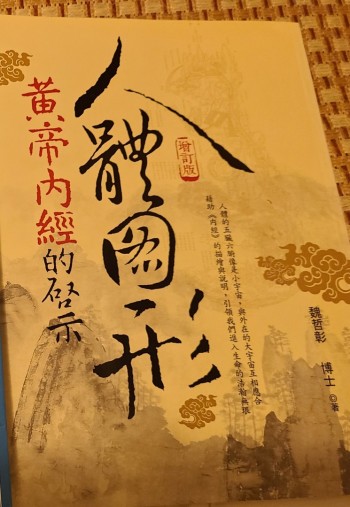 人體圖形
增訂版
黃帝內經的啓示
人體的五臟六腑像是小宇宙,與外在的大宇宙互相應合
藉助《內經》的描繪與說明,引領我們進入生命的浩瀚無垠
魏哲彰 博士 ◎著